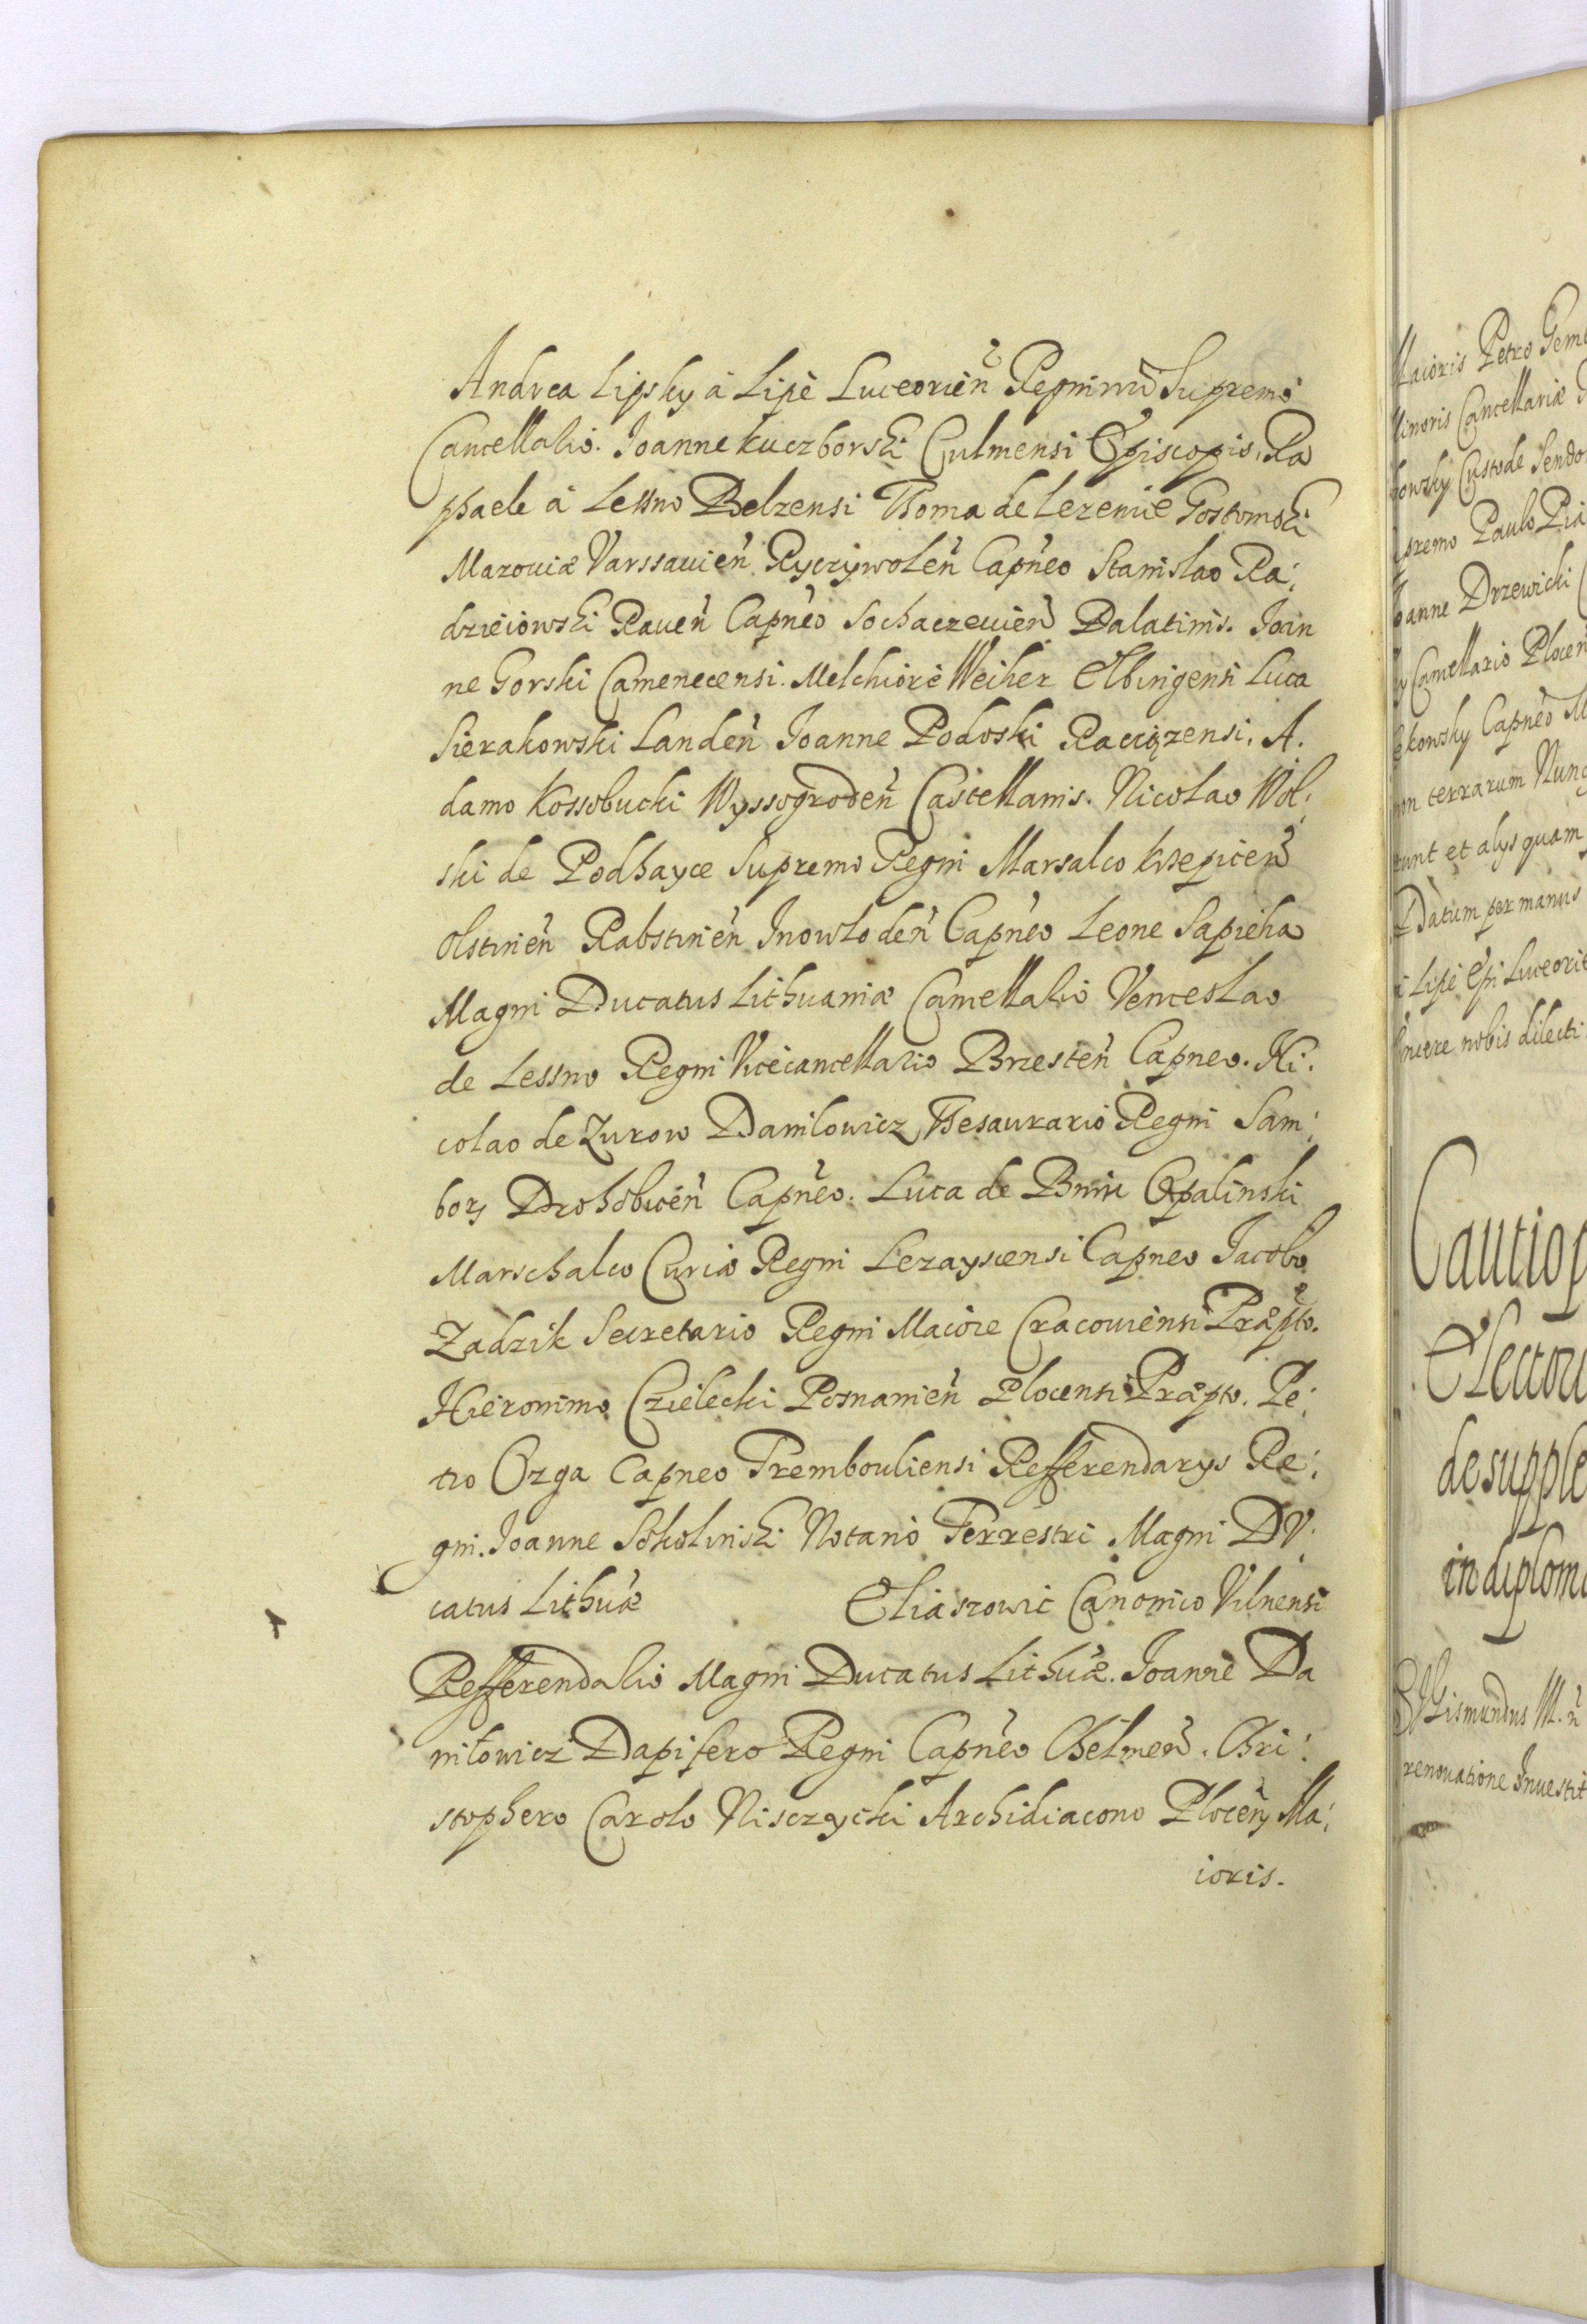 Andrea Lipsky á Lipè Luceorien̄ Regni nrĩ Supremo
Cancellario. Joanne Kuczborski Culmensi Episcopis, Ra
phaele á Lessno Belzensi Thoma de Lezenic Gostomski
Mazouiæ Varssauien̄ Ryczÿwolen̄ Capn̄eo Stanislao Ra:
dzieiowski Rauen̄ Capn̄eo Sochaczeuien̄ Palatinis. Joan
ne Gorski Camenecensi. Melchiore Weiher Elbingensi Luca
Sierakowski Landen̄ Joanne Podoski Raciązensi, A.
damo Kossobucki Wyssogroden̄ Castellanis. Nicolao Wol:
ski de Podhayce Supremo Regni Marsalco Krzepicen̄
Olstinien̄ Rabstinien̄ Inowloden̄ Capn̄eo Leone Sapieha
Magni Ducatus Lithuaniæ Cancellario Venceslao
de Lessno Regni Vicecancellario Brzesten̄ Capneo. Ni:
colao de Zurow Danilowicz Thesaurario Regni Sam:
borz Drohobicen̄ Capn̄eo. Luca de Bnin Opalinski
Marschalco Curiæ Regni Lezayscensi Capneo Jacobo
Zadzik Secretario Regni Maiore Cracouiensi Præpto.
Hieronimo Czielecki Posnanien̄ Plocensi Præpto. Pe:
tro Ozga Capneo Trembouliensi Refferendarys Re:
gni. Joanne Sokolinski Notario Terrestri Magni DV:
catus Lithuæ Eliaszowic Canonico Vilnensi
Refferendario Magni Ducatus Lithuæ. Joanne Da
niłowicz Dapifero Regni Capn̄eo Chelmen̄. Chri:
stophero Carolo Nisczycki Archidiacono Plocen̄ Ma:
ioris.
Maioris Petro Gem
Minoris Cancellariæ
howsky Custode Sendo
premo Paulo Pia
Joanne Drzewicki
Cancellario Plocen̄
kowsky Capn̄eo M
non terrarum Nunc
runt et alys quam
Datum per manus
á Lipè Ep̄i Luceorie
sincere nobis dilecti
Cautio p
Electori
de supple
in diploma
Sigismundus M. n̄
renouatione Inuestit